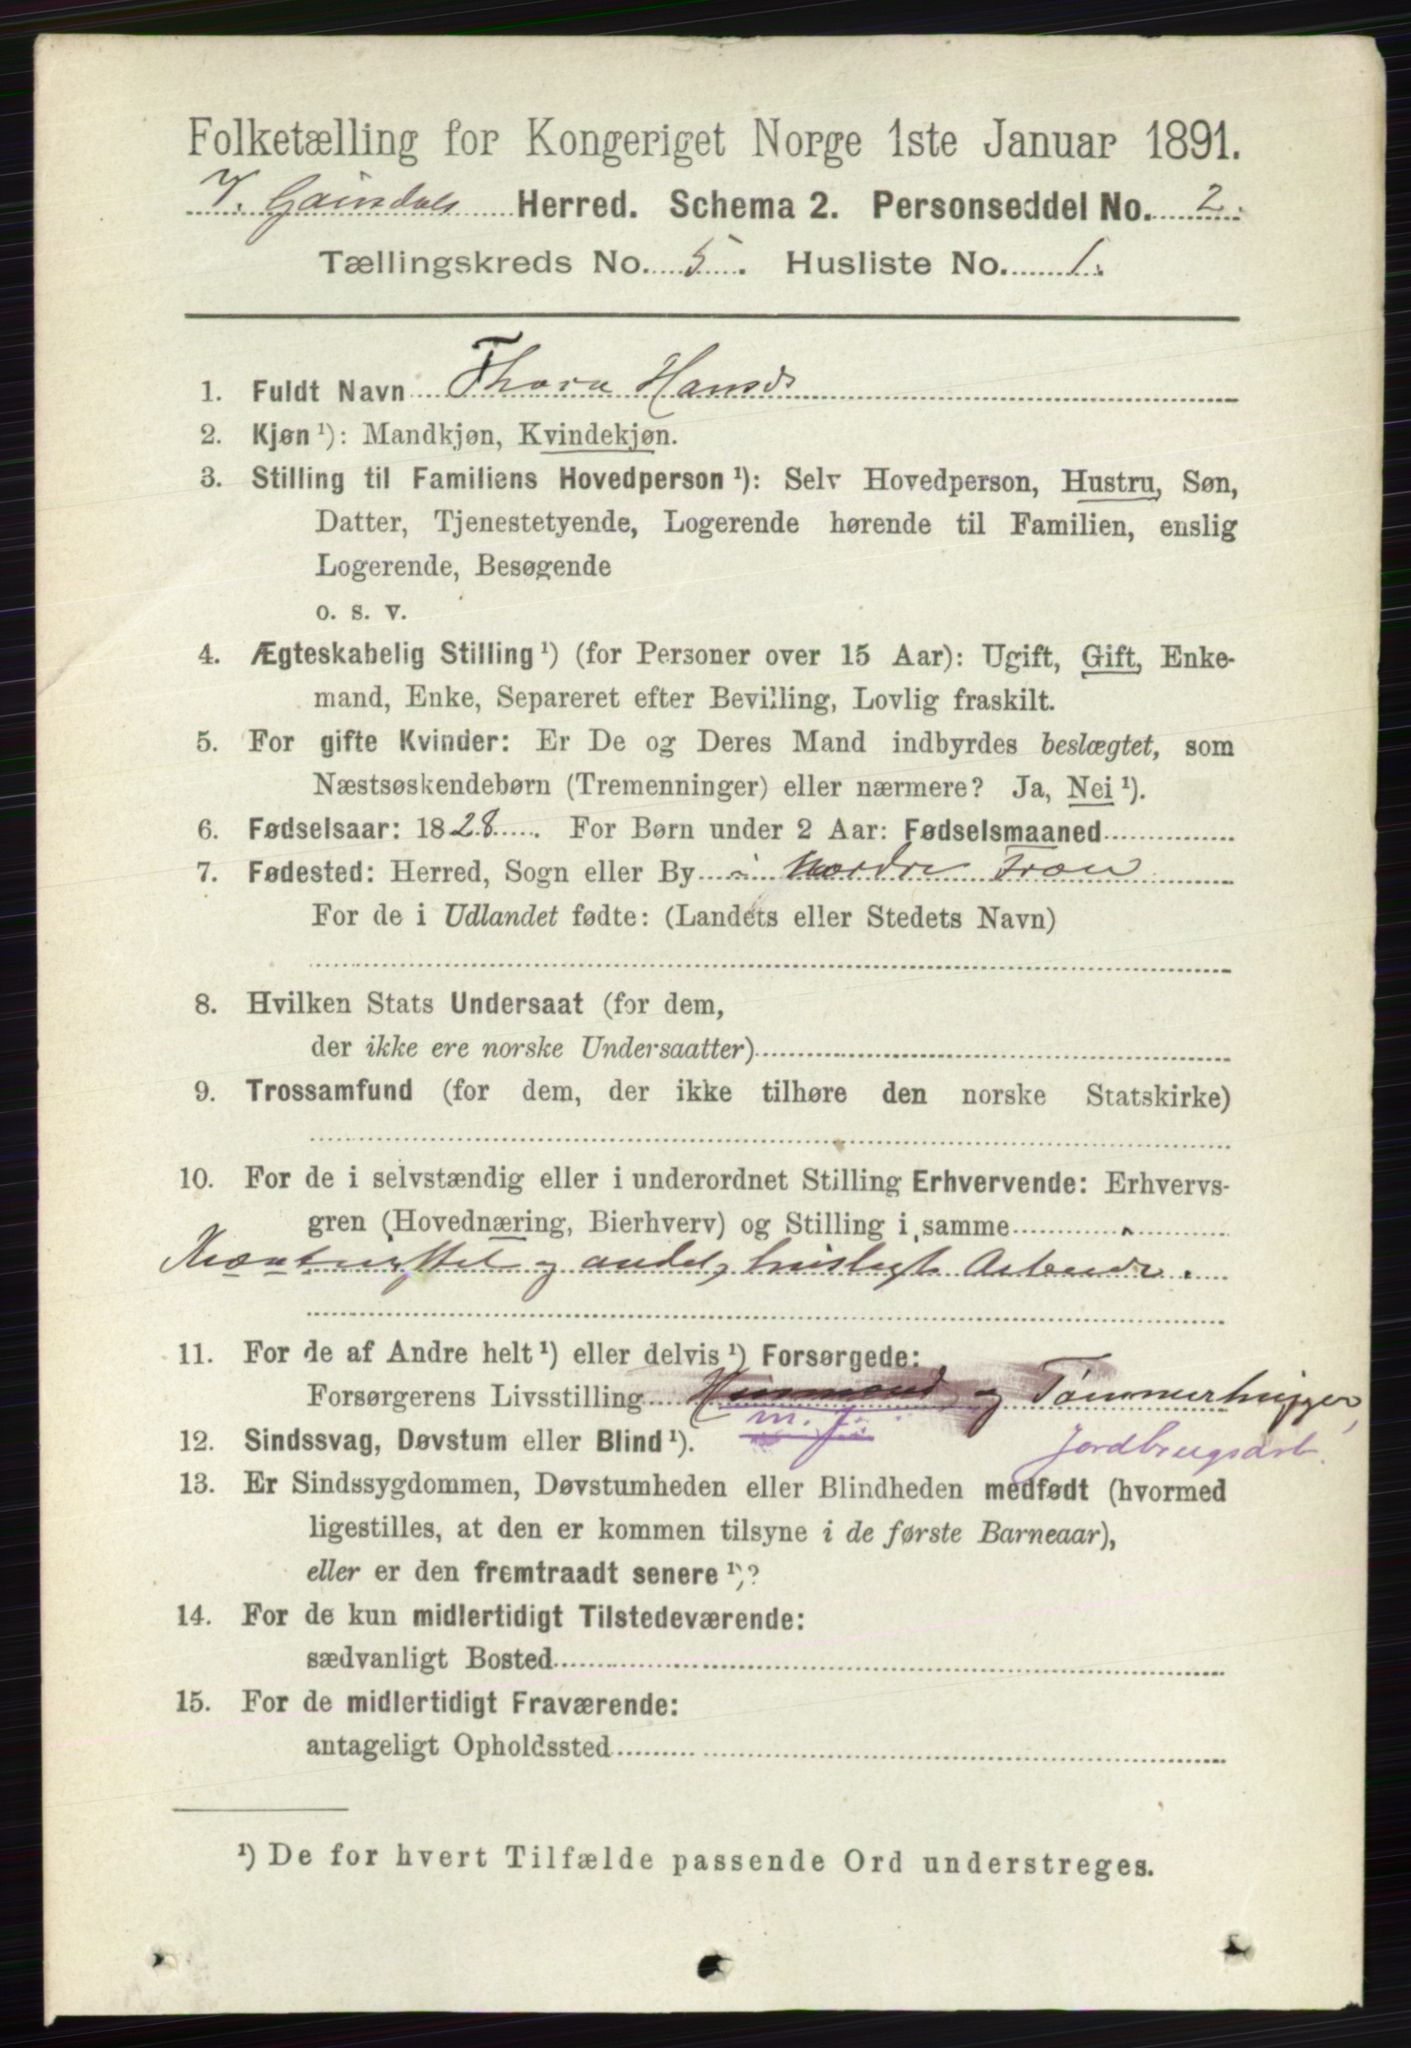 Folketælling for Kongeriget Norge 1ste Januar 1891.
V. Gausdals Herred. Schema 2. Personseddel No. 2.
Tællingskreds No. 5. Husliste No. 1.
1. Fuldt Navn Thora Hansd.
2. Kjøn ¹): Mandkjøn, Kvindekjøn.
3. Stilling til Familiens Hovedperson ¹): Selv Hovedperson, Hustru, Søn,
Datter, Tjenestetyende, Logerende hørende til Familien, enslig
Logerende, Besøgende
o. s. v.
4. Ægteskabelig Stilling ¹) (for Personer over 15 Aar): Ugift, Gift, Enke-
mand, Enke, Separeret efter Bevilling, Lovlig fraskilt.
5. For gifte Kvinder: Er De og Deres Mand indbyrdes beslægtet, som
Næstsøskendebørn (Tremenninger) eller nærmere? Ja, Nei ¹).
6. Fødselsaar: 1828. For Børn under 2 Aar: Fødselsmaaned
7. Fødested: Herred, Sogn eller By i Nordre Fron
For de i Udlandet fødte: (Landets eller Stedets Navn)
8. Hvilken Stats Undersaat (for dem,
der ikke ere norske Undersaatter)
9. Trossamfund (for dem, der ikke tilhøre den norske Statskirke)
10. For de i selvstændig eller i underordnet Stilling Erhvervende: Erhvervs-
gren (Hovednæring, Bierhverv) og Stilling i samme
Kreaturstel og andet husligt Arbeide.
11. For de af Andre helt ¹) eller delvis ¹) Forsørgede:
Forsørgerens Livsstilling Husmand og Tømmerhugger,
m. J.
12. Sindssvag, Døvstum eller Blind ¹). Jordbrugsarb.
13. Er Sindssygdommen, Døvstumheden eller Blindheden medfødt (hvormed
ligestilles, at den er kommen tilsyne i de første Barneaar),
eller er den fremtraadt senere ¹)?
14. For de kun midlertidigt Tilstedeværende:
sædvanligt Bosted
15. For de midlertidigt Fraværende:
antageligt Opholdssted
¹) De for hvert Tilfælde passende Ord understreges.